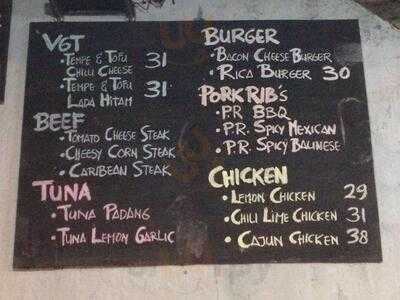 VGT
• Tempe & Tofu
Chili Cheese 31
• Tempe & Tofu
Lada Hitam 31
BEEF
• Tomato Cheese Steak
• Cheesy Corn Steak
• Caribean Steak
TUNA
• Tuna Padang
• Tuna Lemon Garlic
BURGER
• Bacon Cheese Burger
• Rica Burger 30
PORK RIB's
• PR BBQ
• P.R. Spicy Mexican
• P.R. Spicy Balinese
CHICKEN
• Lemon Chicken 29
• Chili Lime Chicken 31
• Cajun Chicken 38